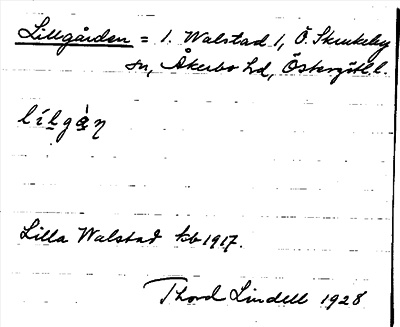 Lillgården = 1. Walstad 1, Ö. Skrukeby
sn, Åkerbo hd, Östergötl. l.
Lilla Walstad kb 1917.
Thord Lindell 1928